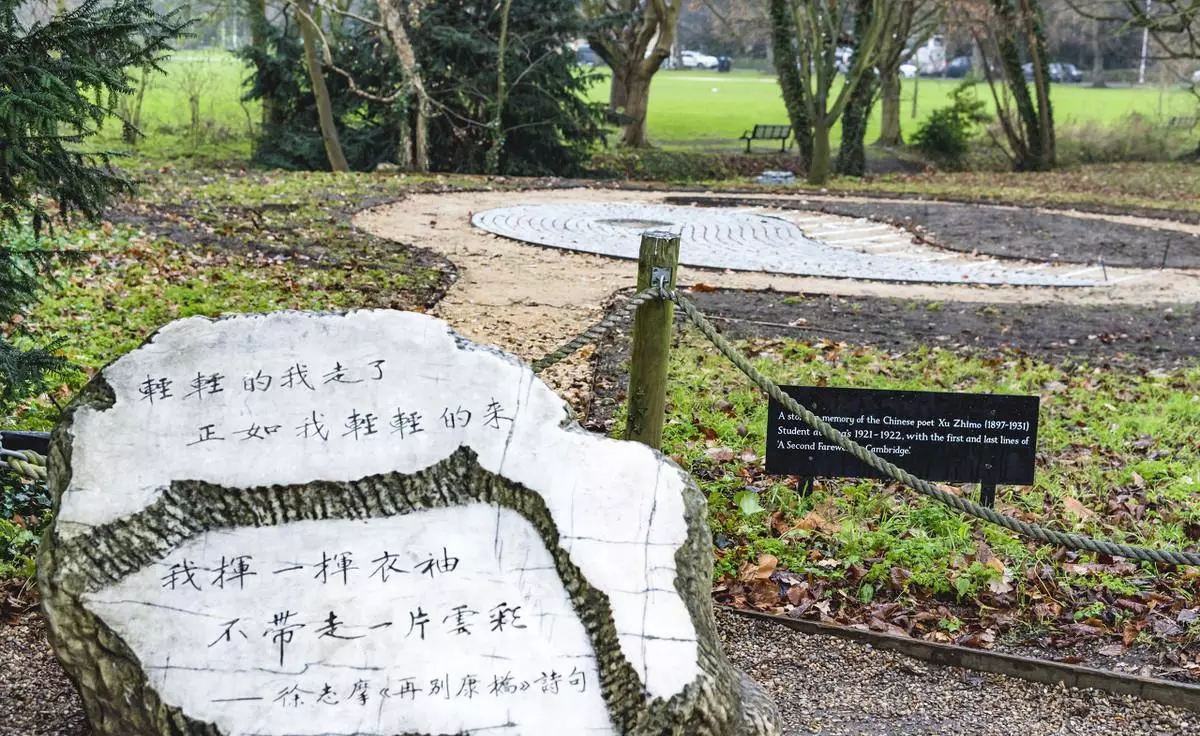 輕輕的我走了
正如我輕輕的来
我揮一揮衣袖
不帶走一片雲彩
——徐志摩《再別康橋》詩句
A memory of the Chinese poet Xu Zhimo (1897-1931)
Student 1921-1922, with the first and last lines of
'A Second Cambridge.'